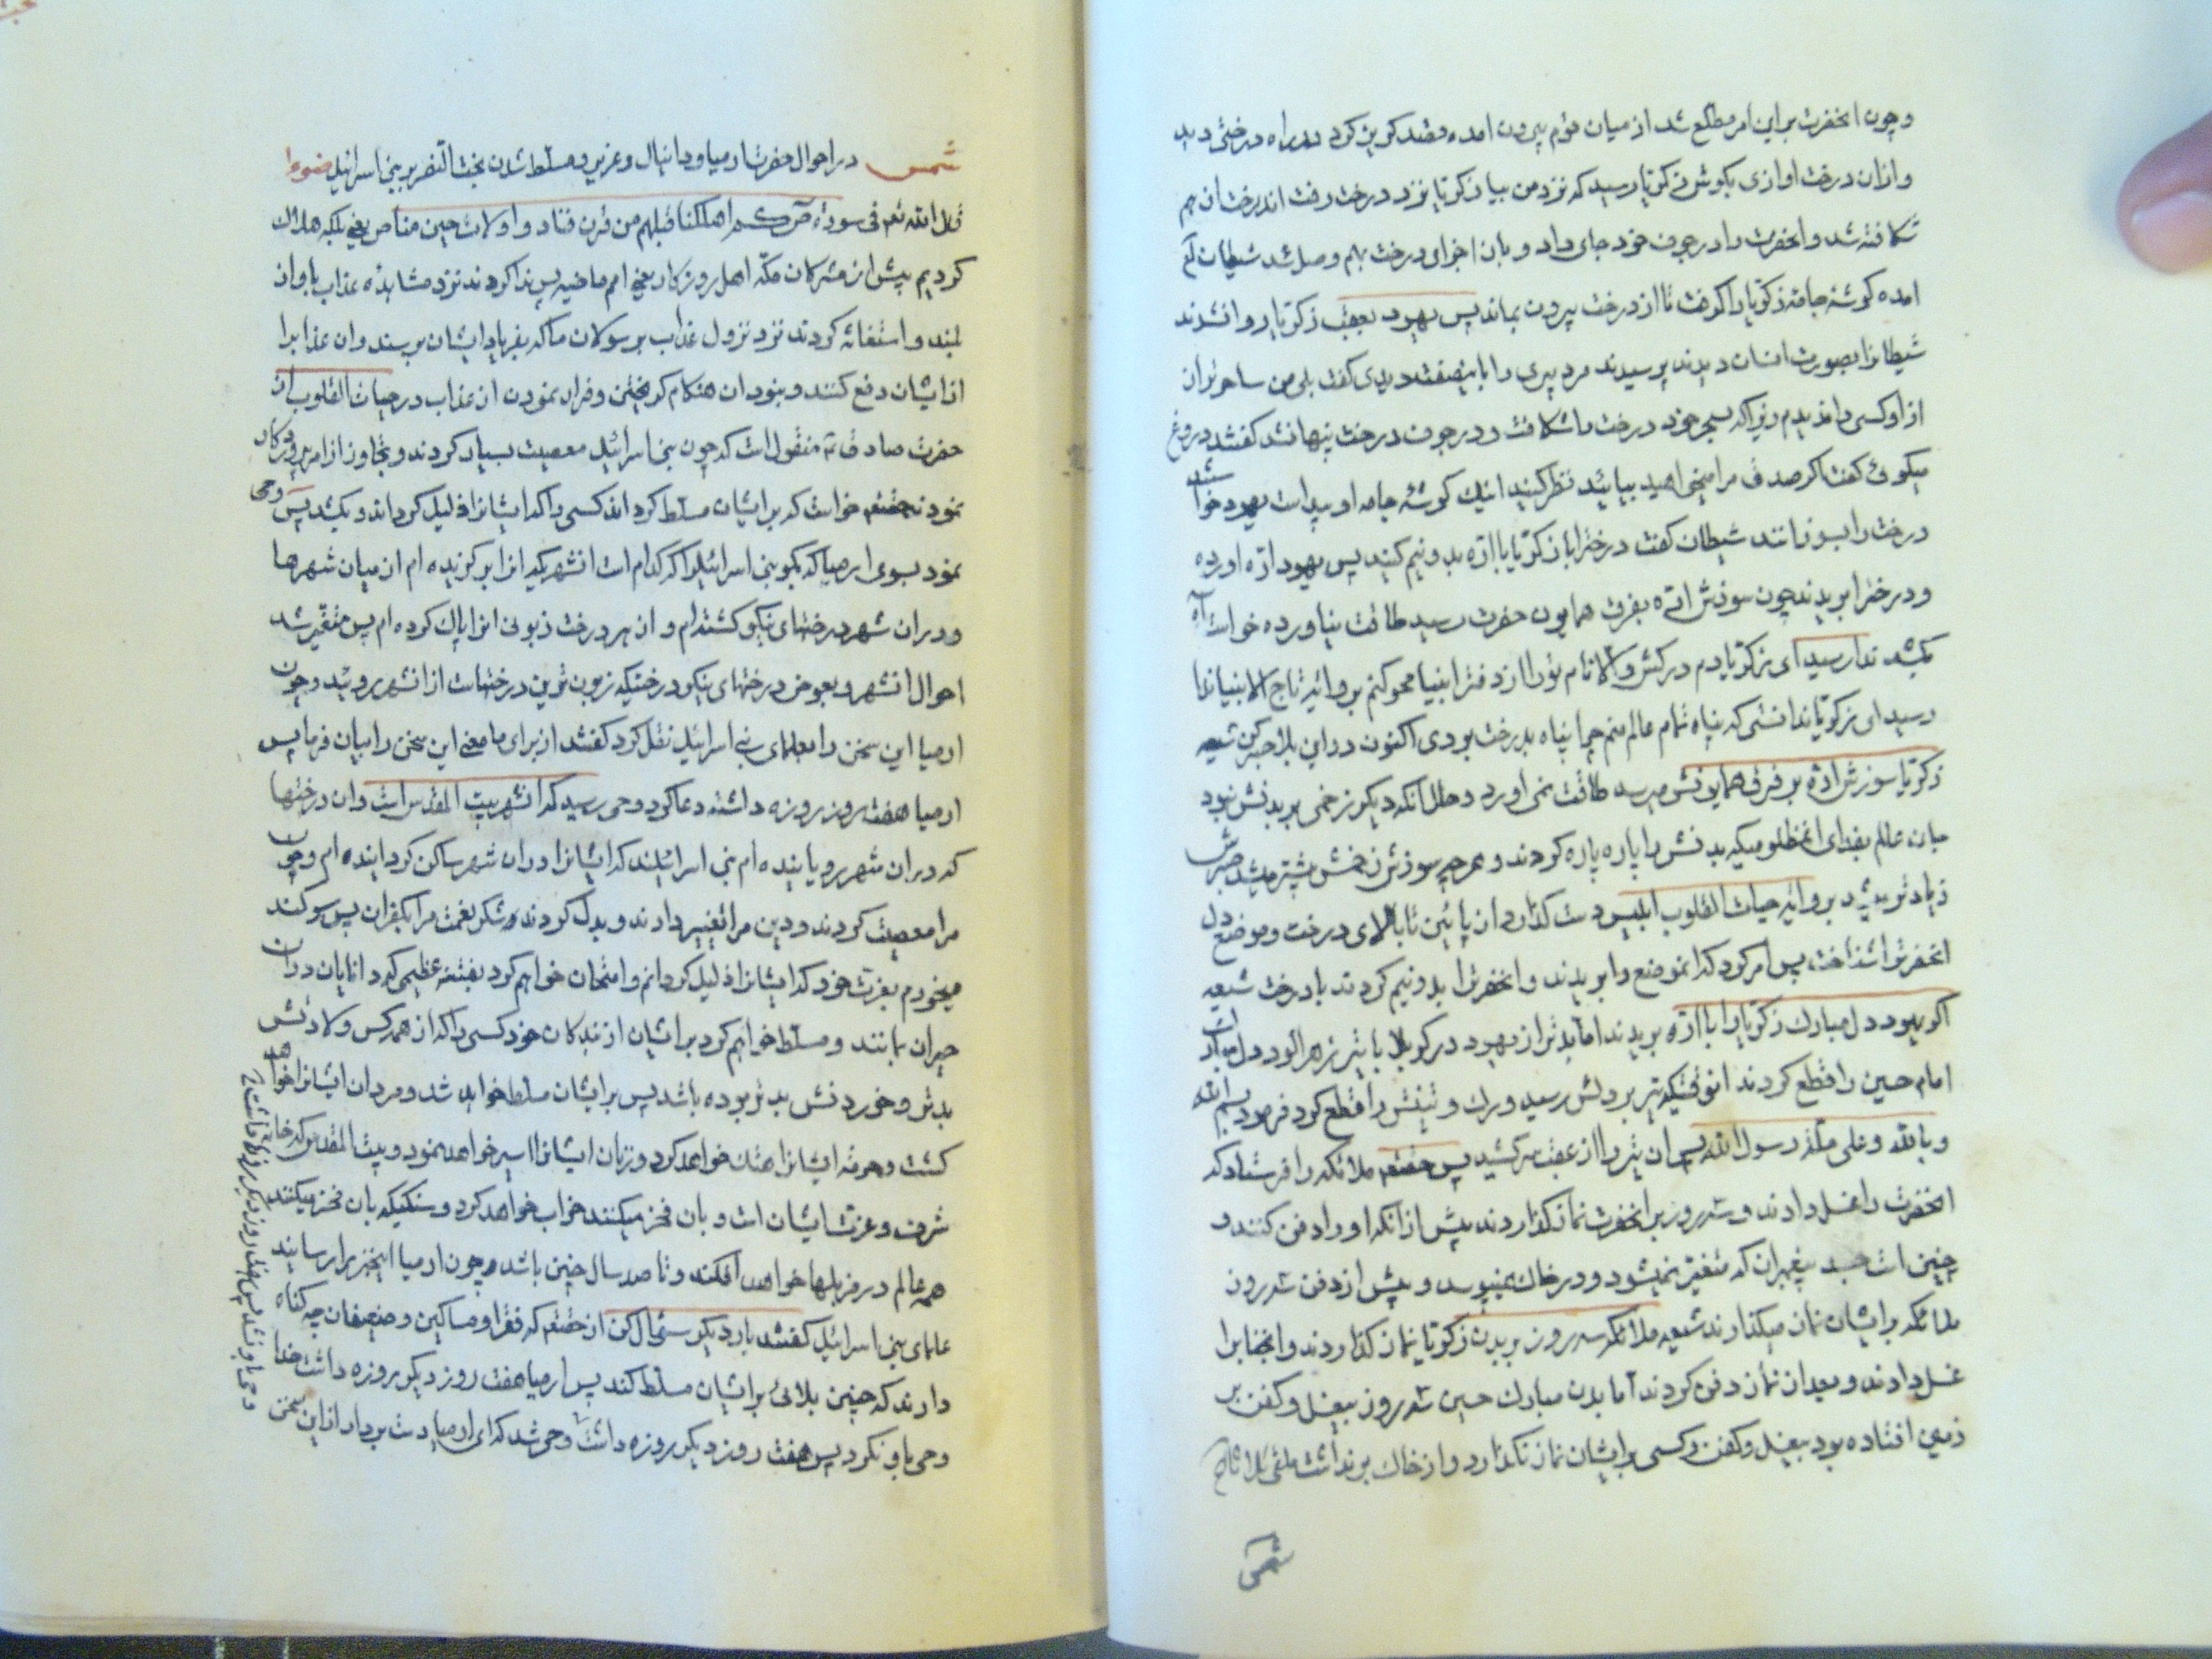 وچون انحضرت براین امر مطلع شد از میان قوم بیرون امده قصد کریز کرد در راه درختی دید
وازان درخت اوازی بکوش زکریا رسید که نزد من بیا زکریا نزد درخت رفت اندرخت ازهم
شکافته شد وانحضرت را در جوف خود جای داد و بان اجزای درخت بهم وصل شد شیطان
امده کوشهٔ جامهٔ زکریا را کرفت تا از درخت بیرون بماند پس یهود بعقب زکریا روانشدند
شیطانرا بصورت انسان دیدند پرسیدند مرد پیری را باینصفت دیدی کفت بلی من ساحرتر از
از او کسی را ندیدم ‌بسحر خود درخت را شکافت و در جوف درخت پنهانشد کفتند دروغ
میکوئی کفت اکر صدق مرا میخواهید بیائید نظر کنید اینک کوشهٔ جامه او پیداست یهود خواستند
درخت را بسوزانند شیطان کفت درخترا با زکریا با ارّه بدو نیم کنید پس یهود ارّه اورده
و درخترا بریدند چون سوزش ارّه بفرق همایون حضرت رسید طاقت نیاورده خواست آه
بکشد ندا رسید ای زکریا دم درکش والا نام تورا از دفتر انبیا محو کنم بروایة تاج الانبیا ندا
رسید ای زکریا ندانستی که پناه تمام عالم منم چرا پناه بدرخت بردی اکنون در این بلا صبر کن شیعه
زکریا سوزش ارّه بر فرق همایونش میرسد طاقت نمی اورد و حال انکه دیکر زخمی بر بدنش نبود
جان عالم بفدای انمظلومیکه بدنش را پاره پاره کردند و هر چه سوزش زخمش بیشتر میشد صبرش
زیادتر میشد بروایة حیات القلوب ابلیس دست کذارد از پائین تا بالای درخت و موضع دل
انحضرترا شناخت پس امر کرد که انموضع را بریدند و انحضرترا بدو نیم کردند با درخت شیعه
اکر یهود دل مبارک زکریا را با ارّه بریدند اما بدتر از یهود در کربلا با تیر زهرالود دل مبارک
امام حسین را قطع کردند انوقتیکه تیر بر دلش رسید و رک و تینش را قطع کرد فرمود بسم الله
وبالله وعلی ملّة رسول الله پس ان تیر را از عقب سر کشید پس حقتعم ملائکه را فرستاد که
انحضرت را غسل دادند و سه روز بر انحضرت نماز کذاردند پیش از انکه او را دفن کنند و
چنین است جسد پیغمبران که متغیّر نمیشود و در خاک نمیپوسد و پیش از دفن سه روز
ملائکه بر ایشان نماز میکذارند شیعه ملائکه سه روز بر بدن زکریا نماز کذاردند و انجنابرا
غسل دادند و بعد از نماز دفن کردند اما بدن مبارک حسین سه روز بیغسل و کفن بر
زمین افتاده بود بیغسل و کفن و کسی بر ایشان نماز نکذارد و از خاک برنداشت
شمس
شمس در احوال حضرت ارمیا و دانیال و عزیر و مسلّط شدن بخت النّصر بر بنی اسرائیل ضوء
قال الله تعم فی سورهٔ ص کم اهلکنا قبلهم من قرن فنادوا ولات حین مناص یعنی بلکه هلاک
کردیم پیش از مشرکان مکّه اهل روزکار یعنی امم ماضیه پس ندا کردند نزد مشاهدهٔ عذاب باواز
بلند و استغاثه کردند نزد نزول عذاب برسولان ما که بفریاد ایشان برسند وان عذابرا
از ایشان دفع کنند و نبود ان هنکام کریختن و فرار نمودن از عذاب در حیات القلوب از
حضرت صادق ع منقول است که چون بنی اسرائیل معصیت بسیار کردند و تجاوز از امر پروردکار
نمودند حقتعم خواست که بر ایشان مسلط کرداند کسی را که ایشانرا ذلیل کرداند و بکشد پس وحی
نمود بسوی ارمیا که بکو بنی اسرائیل را که کدام است انشهریکه انرا برکزیده ام از میان شهرها
و در ان شهر درختهای نیکو کشته‌ام و از هر درخت زبونی انرا پاک کرده ام پس متغیّر شد
احوال انشهر و بعوض درختهای نیکو درختیکه زبون ترین درختهاست از انشهر روئید و چون
ارمیا این سخن را بعلمای بنی اسرائیل نقل کرد کفتند از برای ما معنی این سخن را بیان فرما پس
ارمیا هفت روز روزه داشته دعا کرد وحی رسید که انشهر بیت المقدس است وان درختها
که در ان شهر رویانیده ام بنی اسرائیلند که ایشانرا در ان شهر ساکن کردانیده ام و چون
مرا معصیت کردند و دین مرا تغییر دادند و بدل کردند شکر نعمت مرا بکفران پس سوکند
میخورم بعزت خود که ایشانرا ذلیل کردانم و امتحان خواهم کرد بفتنهٔ عظیمی که دانایان در ان
حیران بمانند و مسلط خواهم کرد بر ایشان از بندکان خود کسی را که از همه کس ولادتش
بدتر و خوردنش بدتر بوده باشد پس بر ایشان مسلط خواهد شد و مردان ایشانرا خواهد
کشت و حرمة ایشانرا هتک خواهد کرد و زنان ایشانرا اسیر خواهد نمود و بیت المقدس که خانه
شرف و عزت ایشان است و بان فخر میکنند خراب خواهد کرد و سنکیکه بان فخر میکنند
همه عالم در مزبلها خواهد افکند و تا صد سال چنین باشد و چون ارمیا اینخبر را رسانید
علمای بنی اسرائیل کفتند بار دیکر سئوال کن از حقتعم که فقرا و مساکین و ضعیفان چه کناه
دارند که چنین بلائی بر ایشان مسلط کند پس ارمیا هفت روز دیکر روزه داشت
وحی باو نکرد پس هفت روز دیکر روزه داشت وحی شد که ای ارمیا دست بردار از این سخن
وحی باو نشد پس هفت روز دیکر روزه داشت